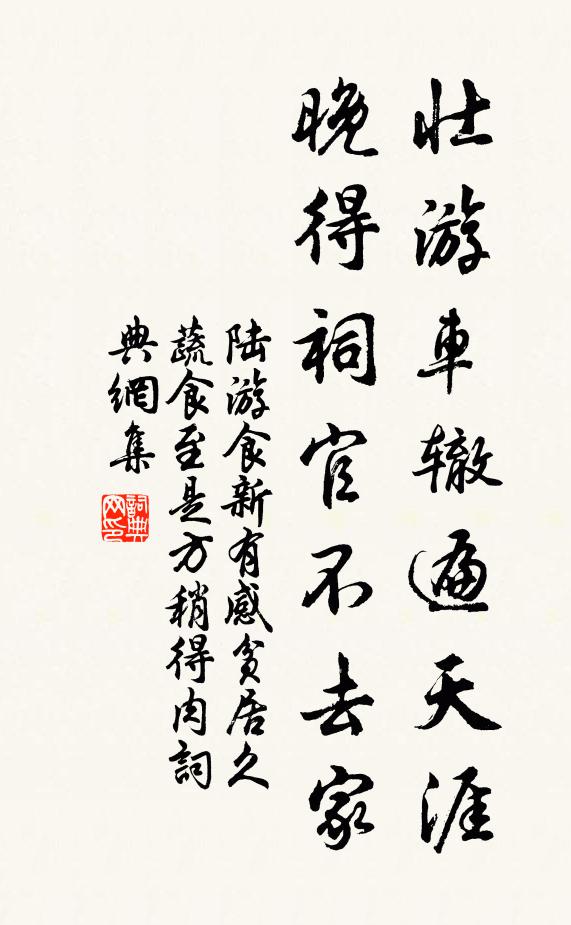 壮游車轍遍天涯
晚得祠官不去家
陆游食新有感貧居久
蔬食至是方稍得肉詞
典網集
詞典
网印